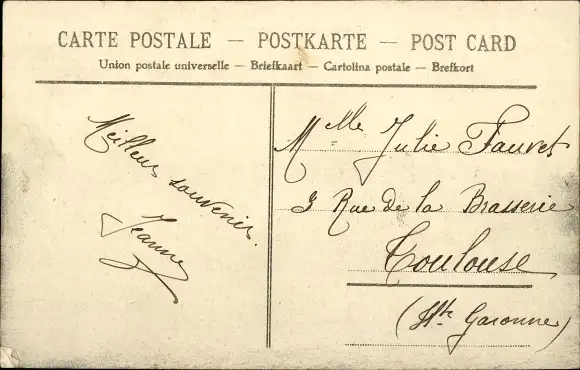 CARTE POSTALE — POSTKARTE — POST CARD
Union postale universelle — Briefkaart — Cartolina postale — Brefkort
Meilleur souvenir.
Jeanne
Melle Julie Fauret
3 Rue de la Brasserie
Toulouse
(Hte Garonne)